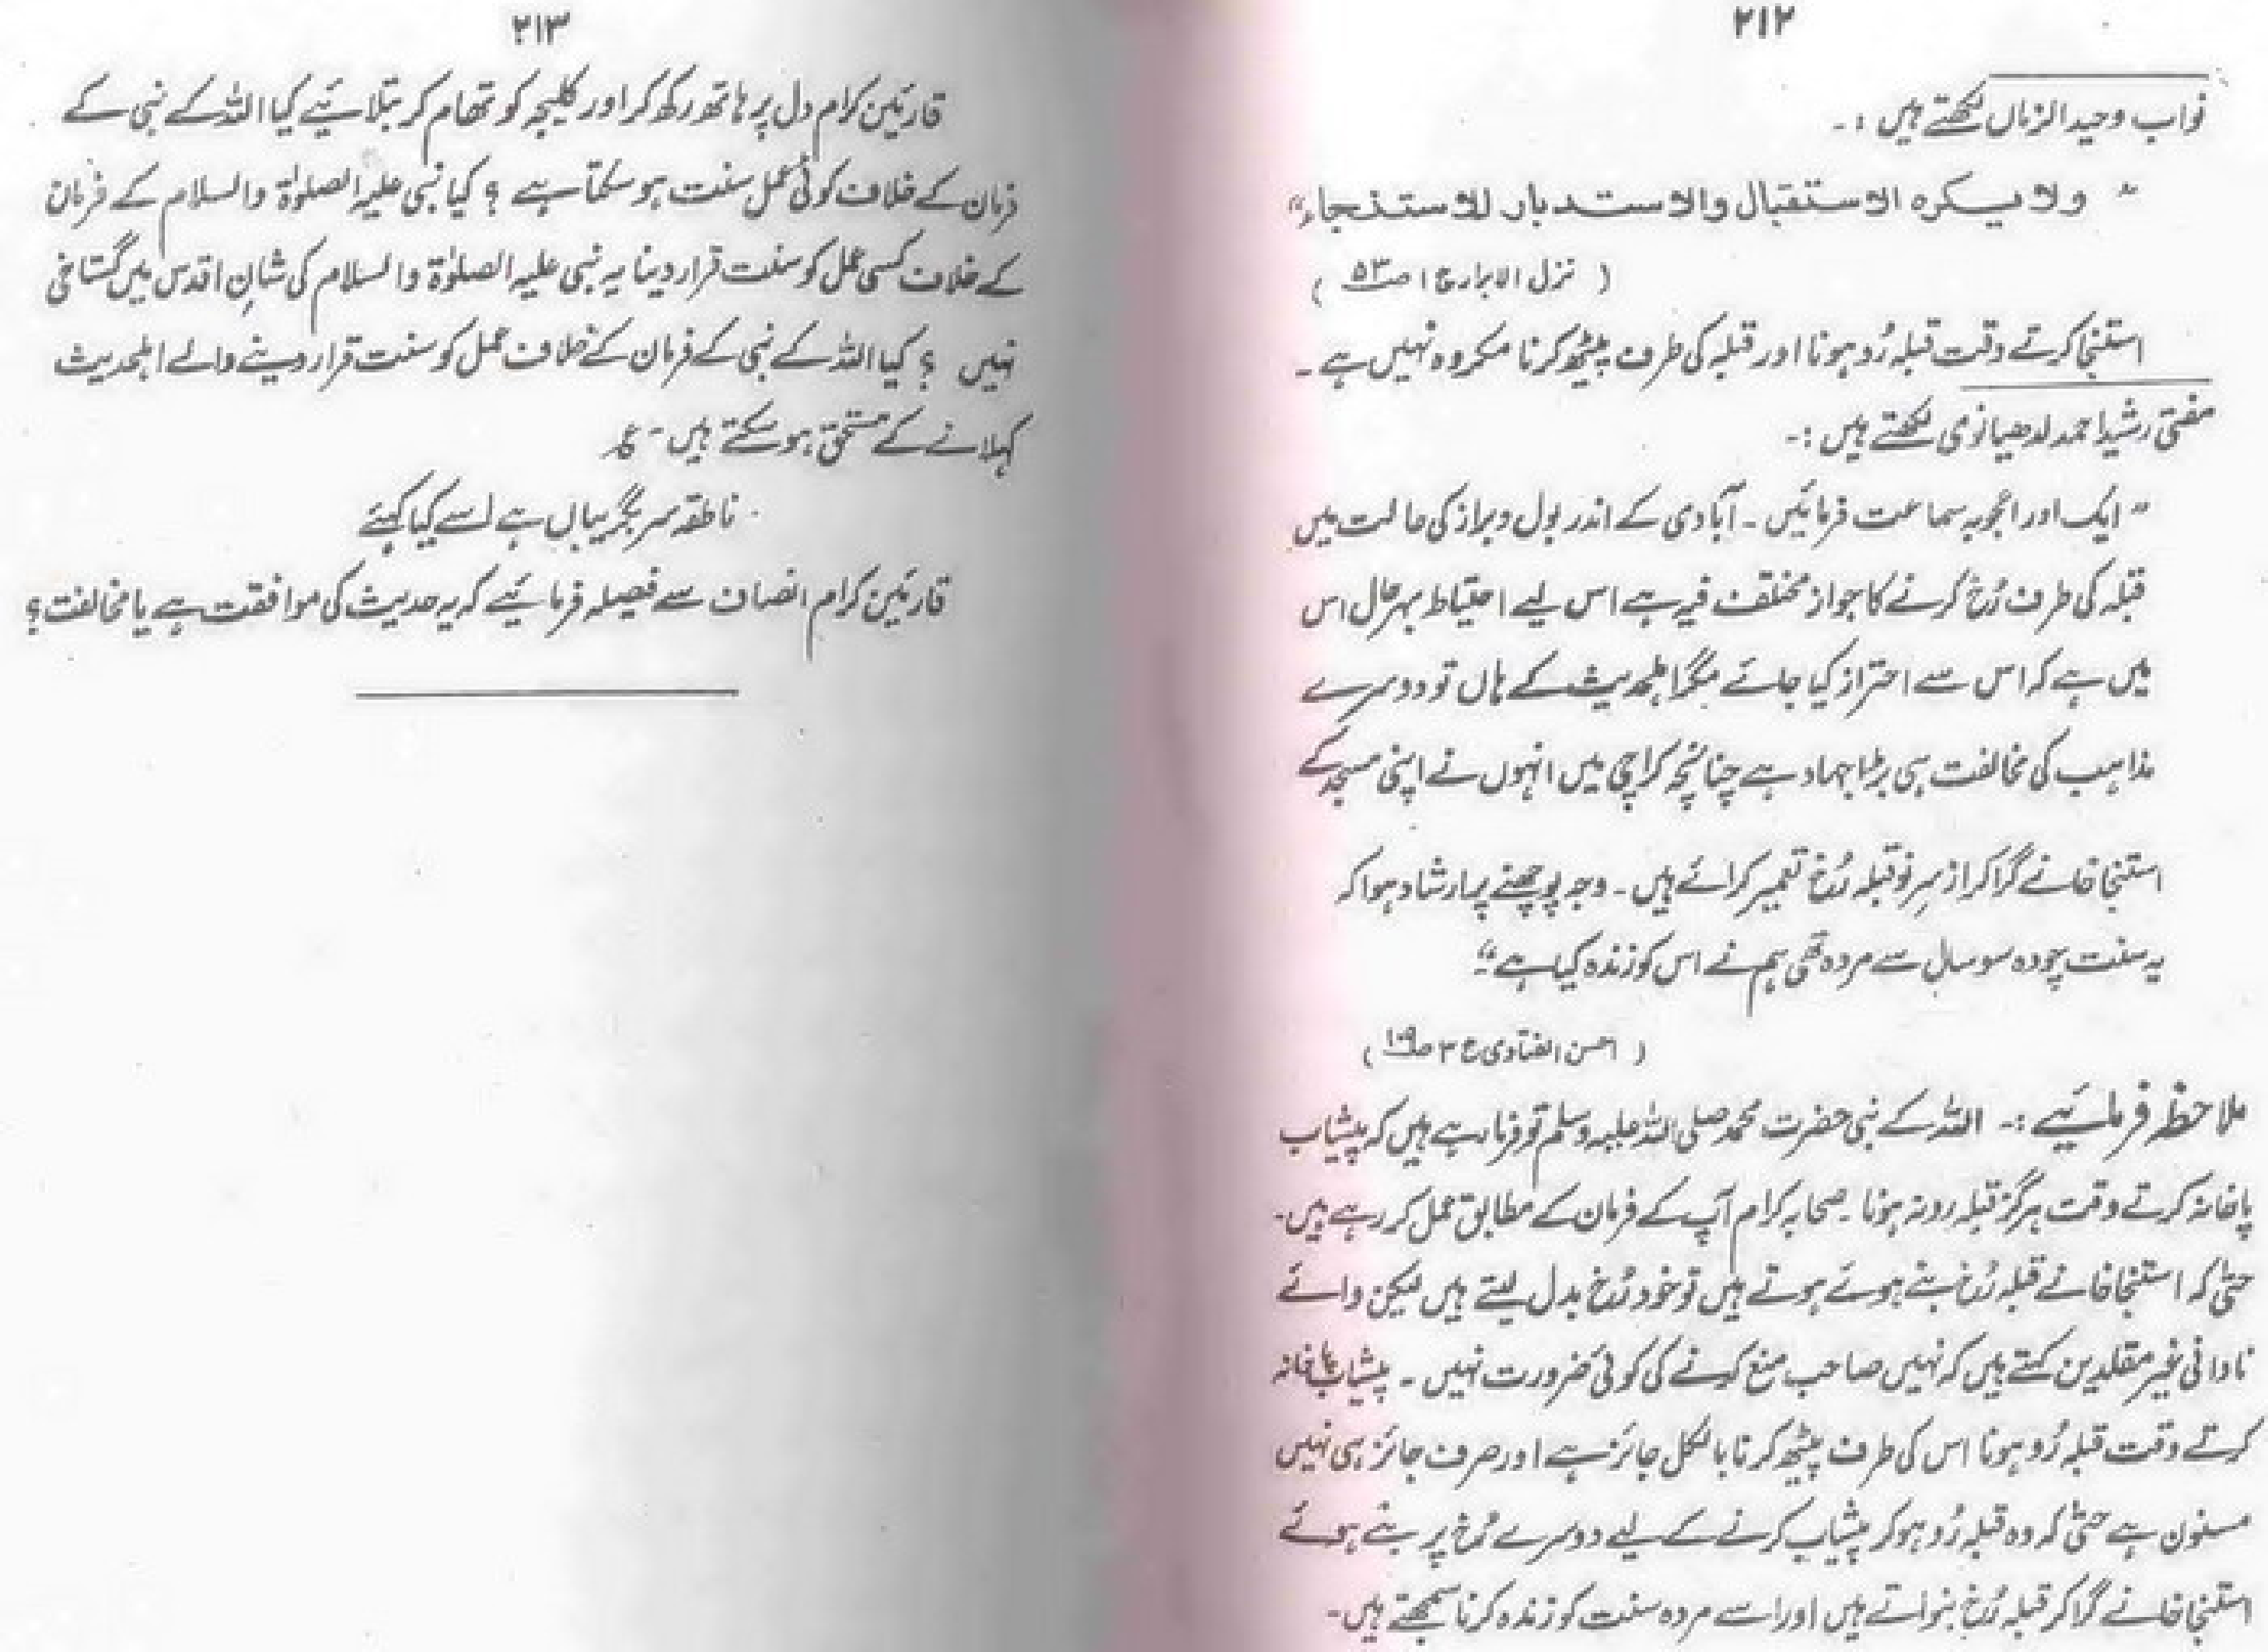 ۲۱۲
نواب وحید الزماں لکھتے ہیں :۔
" ولا یکره الاستقبال والاستدبار للاستنجاء"
( نزل الابرار ج ۱ ص۵۳ )
استنجا کرتے وقت قبلہ رُو ہونا اور قبلہ کی طرف پیٹھ کرنا مکروہ نہیں ہے ۔
مفتی رشید احمد لدھیانوی لکھتے ہیں :۔
" ایک اور اعجوبہ سماعت فرمائیں ۔ آبادی کے اندر بول و براز کی حالت میں
قبلہ کی طرف رُخ کرنے کا جواز مختلف فیہ ہے اس لیے احتیاط بہرحال اس
میں ہے کہ اس سے احتراز کیا جائے مگر اہلحدیث کے ہاں تو دوسرے
مذاہب کی مخالفت ہی بڑا جہاد ہے چنانچہ کراچی میں انہوں نے اپنی مسجد کے
استنجا خانے گرا کر از سرِ نو قبلہ رُخ تعمیر کرائے ہیں ۔ وجہ پوچھنے پر ارشاد ہوا کہ
یہ سنت چودہ سو سال سے مردہ تھی ہم نے اس کو زندہ کیا ہے"
( احسن الفتاوی ج ۳ ص۱۰۹ )
ملاحظہ فرمائیے :۔ اللہ کے نبی حضرت محمد صلی اللہ علیہ وسلم تو فرما رہے ہیں کہ پیشاب
پاخانہ کرتے وقت ہرگز قبلہ رو نہ ہونا ۔ صحابہ کرام آپ کے فرمان کے مطابق عمل کر رہے ہیں۔
حتیٰ کہ استنجا خانے قبلہ رُخ بنے ہوئے ہوتے ہیں تو خود رُخ بدل لیتے ہیں لیکن وائے
نادانی غیر مقلدین کہتے ہیں کہ نہیں صاحب منع کرنے کی کوئی ضرورت نہیں ۔ پیشاب پاخانہ
کرتے وقت قبلہ رُو ہونا اس کی طرف پیٹھ کرنا بالکل جائز ہے اور صرف جائز ہی نہیں
مسنون ہے حتیٰ کہ وہ قبلہ رُو ہو کر پیشاب کرنے کے لیے دوسرے رُخ پر بنے ہوئے
استنجا خانے گرا کر قبلہ رُخ بنواتے ہیں اور اسے مردہ سنت کو زندہ کرنا سمجھتے ہیں۔
۲۱۳
قارئین کرام دل پر ہاتھ رکھ کر اور کلیجہ کو تھام کر بتلائیے کیا اللہ کے نبی کے
فرمان کے خلاف کوئی عمل سنت ہو سکتا ہے ؟ کیا نبی علیہ الصلوٰۃ والسلام کے فرمان
کے خلاف کسی عمل کو سنت قرار دینا یہ نبی علیہ الصلوٰۃ والسلام کی شانِ اقدس میں گستاخی
نہیں ؟ کیا اللہ کے نبی کے فرمان کے خلاف عمل کو سنت قرار دینے والے اہلحدیث
کہلانے کے مستحق ہو سکتے ہیں ۔ ع
ناطقہ سر بگریباں ہے اسے کیا کہئے
قارئین کرام انصاف سے فیصلہ فرمائیے کہ یہ حدیث کی موافقت ہے یا مخالفت؟